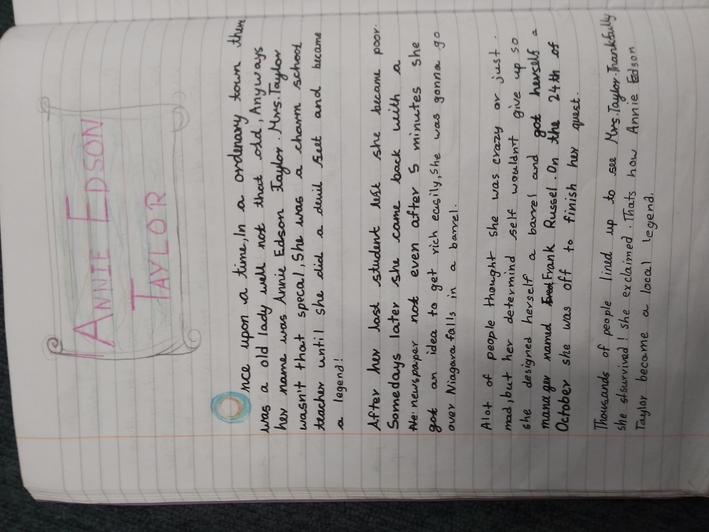 ANNIE EDSON
TAYLOR
Once upon a time,In a ordinary town then
was a old lady well not that old, Anyways
her name was Annie Edson Taylor. Mrs.Taylor
wasn't that specal, She was a charm school
teacher until she did a devil feet and became
a legend!
After her last student left she became poor.
Somedays later she came back with a
newspaper not even after 5 minutes she
got an idea to get rich easily, She was gonna go
over Niagara falls in a barrel.
Alot of people thought she was crazy or just
mad, but her determind self wouldn't give up so
she designed herself a barrel and got herself a
manager named Frank Russel. On the 24th of
October she was off to finish her quest.
Thousands of people lined up to see Mrs.Taylor.Thankfully
she survived! she exclaimed. Thats how Annie Edson
Taylor became a local legend.